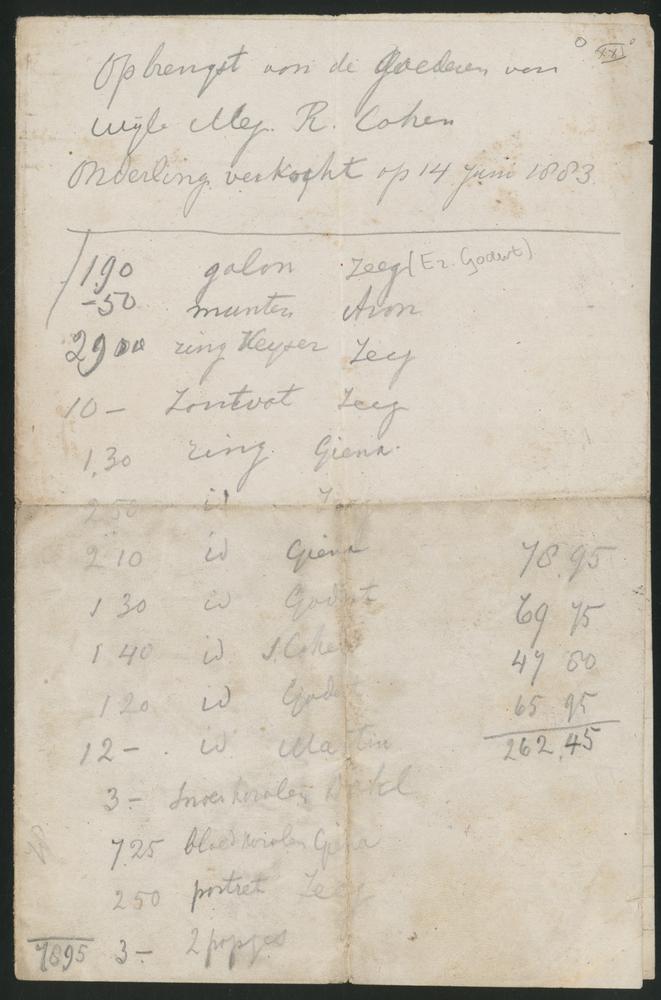 XXI
Opbrengst von de Goederen von
wijle Mej. R. Cohen
Onderling verkocht op 14 Juni 1883.
1.90 galon Zeeg (Ez. Godert)
-50 munten Aron
29 00 ring Keyser Zeeg
10 - Zontvat Zeeg
1.30 ring Giena.
2 50 id Zeeg
2 10 id Giena
1 30 id Godert
1 40 id S. Cohen
1 20 id Godert
12 - . id Martin
3 - Snoer koralen
7 25 bloedkoralen Giena
2 50 portret Zeeg
3 - 2 popjes
78 95
78 95
69 75
47 80
65 95
262.45